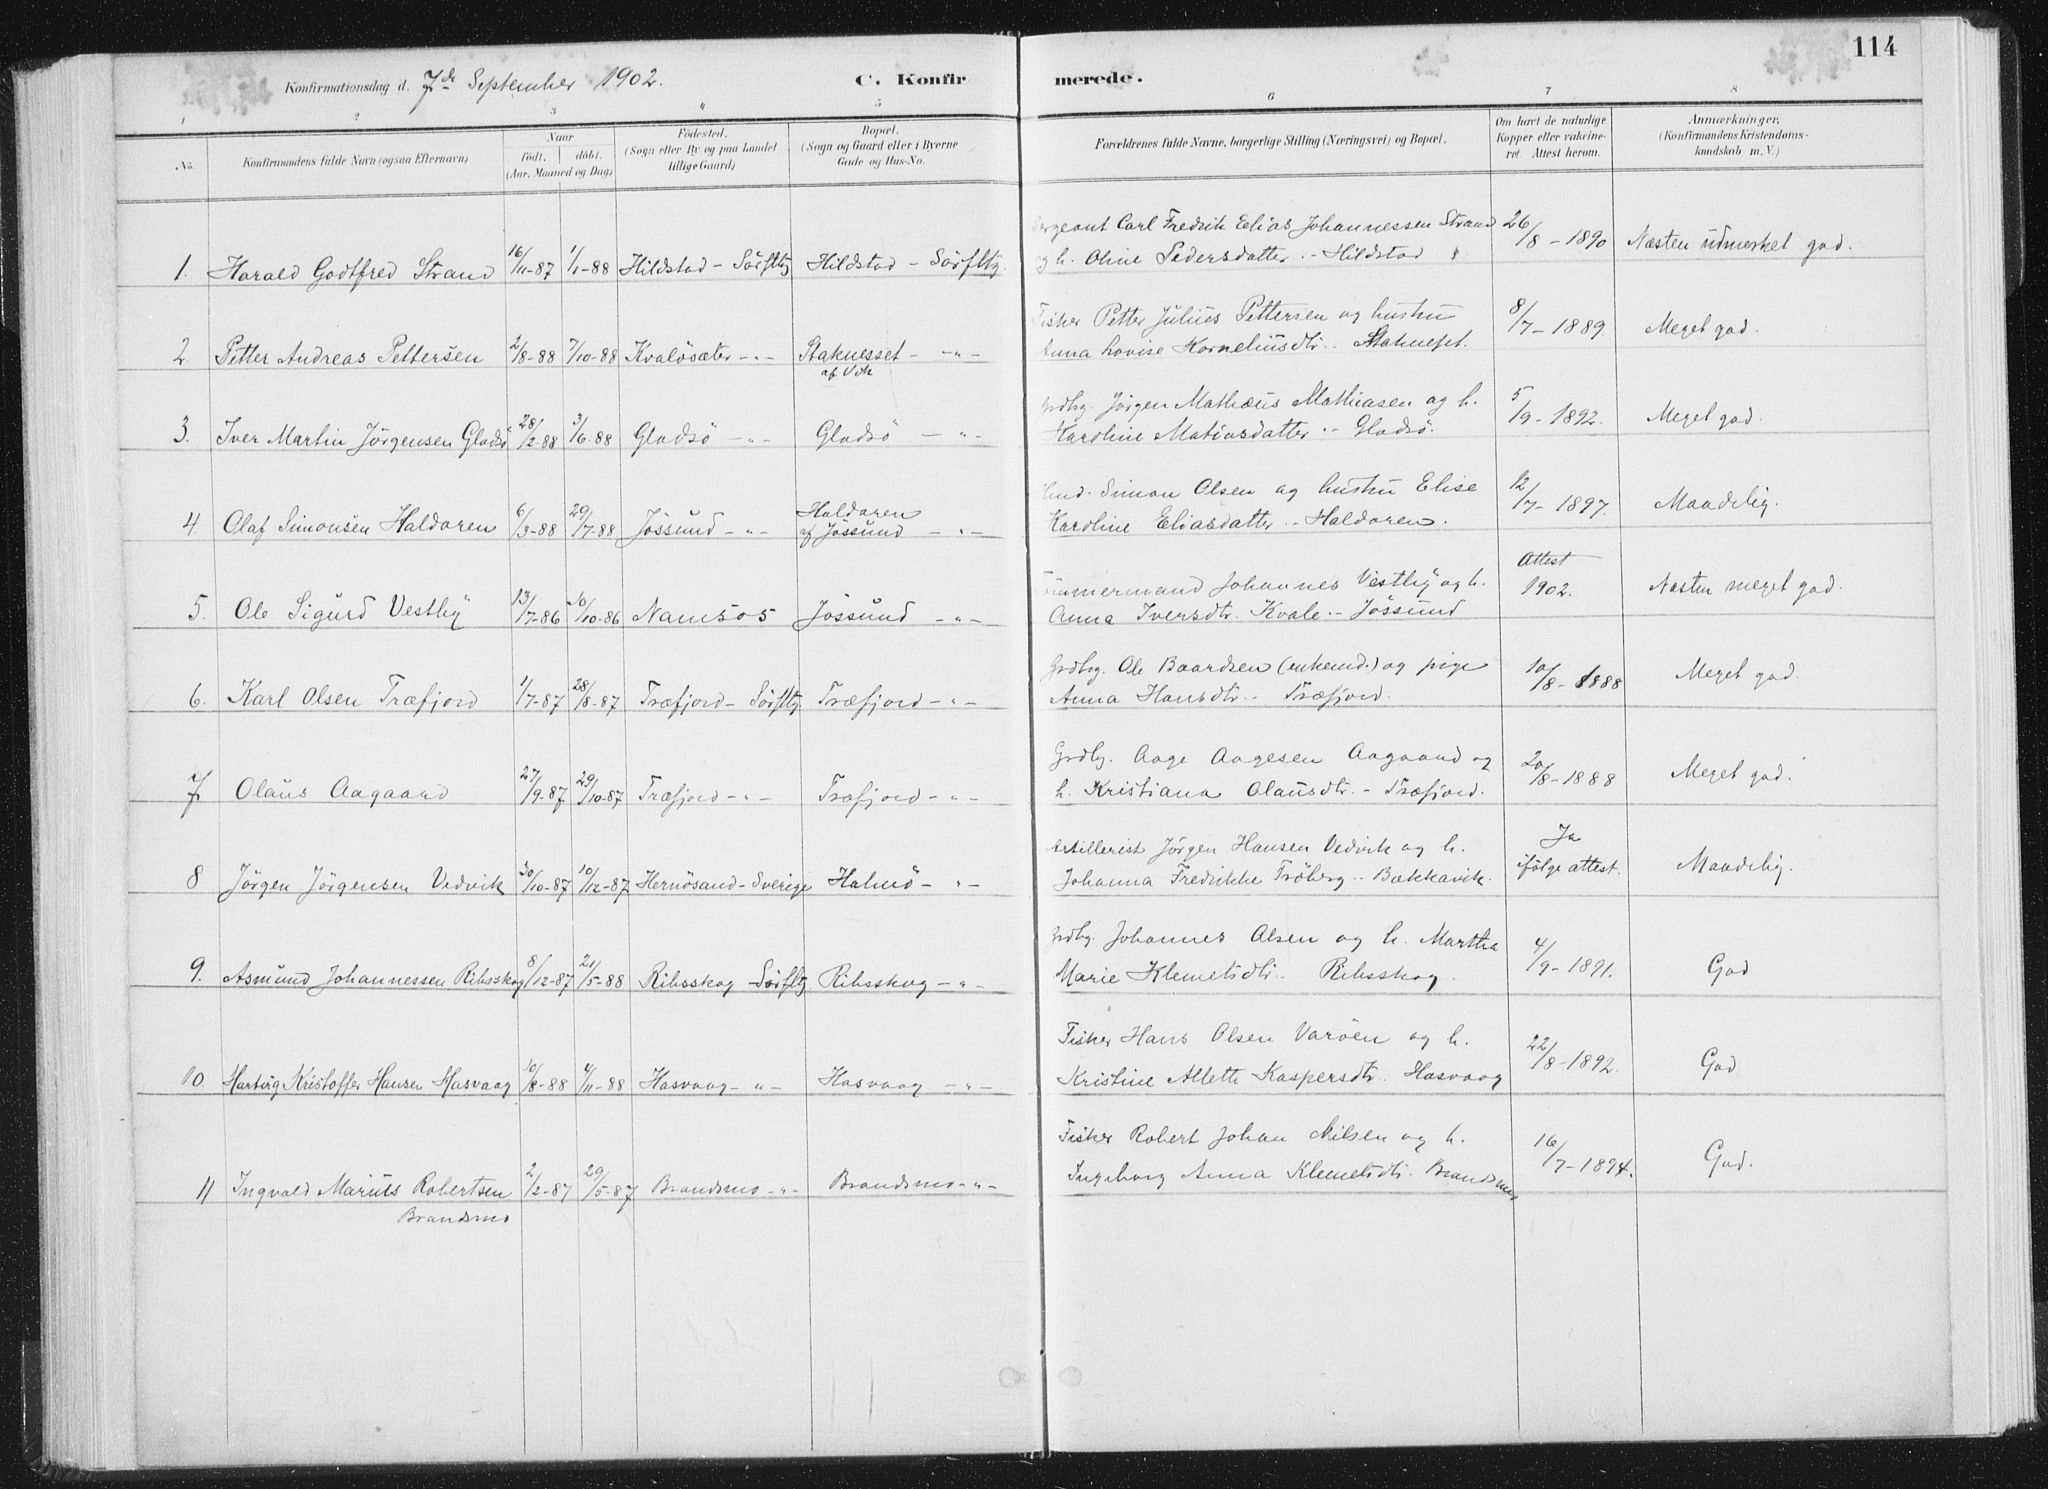 114
Konfirmationsdag d. 7de September 1902.
C. Konfirmerede.
1 2 3 4 5 6 7 8
No.
Konfirmandens fulde Navn (ogsaa Efternavn)
Naar
født. døbt.
(Aar, Maaned og Dag)
Fødested.
(Sogn eller By og paa Landet
tillige Gaard)
Bopæl.
(Sogn og Gaard eller i Byerne
Gade og Hus-No.
Forældrenes fulde Navne, borgerlige Stilling (Næringsvei) og Bopæl.
Om havt de naturlige
Kopper eller vakcine-
ret. Attest herom.
Anmærkninger.
(Konfirmandens Kristendoms-
kundskab m. V.)
1. Harald Godtfred Strand 16/11-87 1/1-88 Hildstad - Sörfltg Hildstad - Sörfltg.
Sergeant Carl Fredrik Elias Johannessen Strand
og h. Oline Pedersdatter .- Hildstad
26/8-1890 Næsten udmerket god.
2 Petter Andreas Pettersen 2/8-88 7/10-88 Kvalösæter -"- Staknesset - -"-
af Vik
Fisker Petter Julius Pettersen og hustru
Anna Lovise Korneliusdtr .- Staknesset.
8/7-1889. Meget god.
3. Iver Martin Jörgensen Gladsö 28/2-88 3/6-88 Gladsö -"- Gladsö -"-
Grdbg. Jörgen Mathæus Mathiasen og h.
Karoline Matiasdatter .- Gladsö.
5/9-1892. Meget god.
4 Olaf Simonsen Haldoren 6/3-88 29/7-88 Jössund -"- Haldoren
af Jössund -"-
Simon Olsen og hustru Elise
Karoline Eliasdatter .- Haldoren.
12/7-1897. Maadelig.
5. Ole Sigurd Vestby 13/7-86 10/10-86 Namsos Jössund -"-
Tömmermand Johannes Vestby og h.
Anna Iversdtr. Kvale .- Jössund
Attest
1902. Næsten meget god.
6. Karl Olsen Træfjord 1/7-87 28/8-87 Træfjord - Sörfltg Træfjord -"-
Grdbg. Ole Baardsen (enkemd.) og pige
Anna Hansdtr .- Træfjord.
10/8-1888 Meget god.
7 Olaus Aagaard 27/9-87 29/10-87 Træfjord -"- Træfjord -"-
Grdbg. Aage Aagesen Aagaard og
h. Kristiana Olausdtr .- Træfjord.
20/8-1888 Meget god.
8 Jörgen Jörgensen Vedvik 30/10-87 10/12-87 Hernösand - Sverige Halmö -"-
Artillerist Jörgen Hansen Vedvik og h.
Johanna Fredrikke Fröberg .- Bakkavik.
Ja
ifölge attest. Maadelig.
9. Asmund Johannessen Ribsskog 8/12-87 21/5-88 Ribsskog - Sörfltg Ribsskog -"-
Grdbg. Johannes Olsen og h. Martha
Marie Klemetsdtr .- Ribsskog.
4/9-1891. God
10. Hartvig Kristoffer Hansen Hasvaag 10/8-88 4/11-88 Hasvaag -"- Hasvaag -"-
Fisker Hans Olsen Varöen og h.
Kristine Alleth Kaspersdtr. Hasvaag
22/8-1892. God
11 Ingvald Marius Robertsen 2/2-87 29/5-87 Brandsmo -"- Brandsmo -"-
Brandsmo
Fisker Robert Johan Nilsen og h.
Ingeborg Anna Klemetsdtr. Brandsmo
16/7-1894. God.